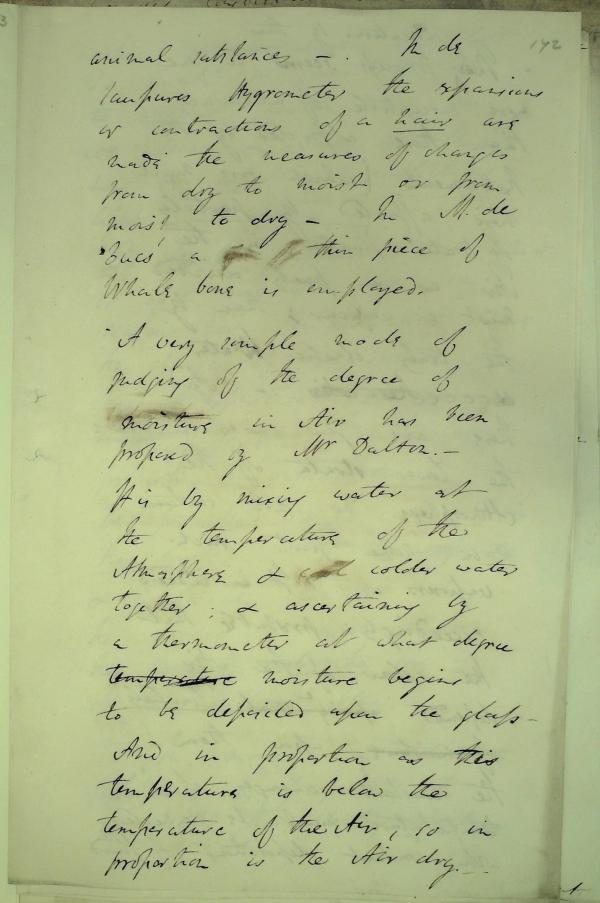 142
animal substances –. In de
Saussures Hygrometer the expansions
or contractions of a hair are
made the measures of changes
from dry to moist or from
moist to dry – In M. de
Luc's a thin piece of
Whale bone is employed.
A very simple mode of
judging of the degree of
moisture in Air has been
proposed by Mr Dalton. –
It is by mixing water at
the temperature of the
Atmosphere & colder water
together; & ascertaining by
a thermometer at what degree
temperature moisture begins
to be deposited upon the glass –
And in proportion as this
temperature is below the
temperature of the Air, so in
proportion is the Air dry. –